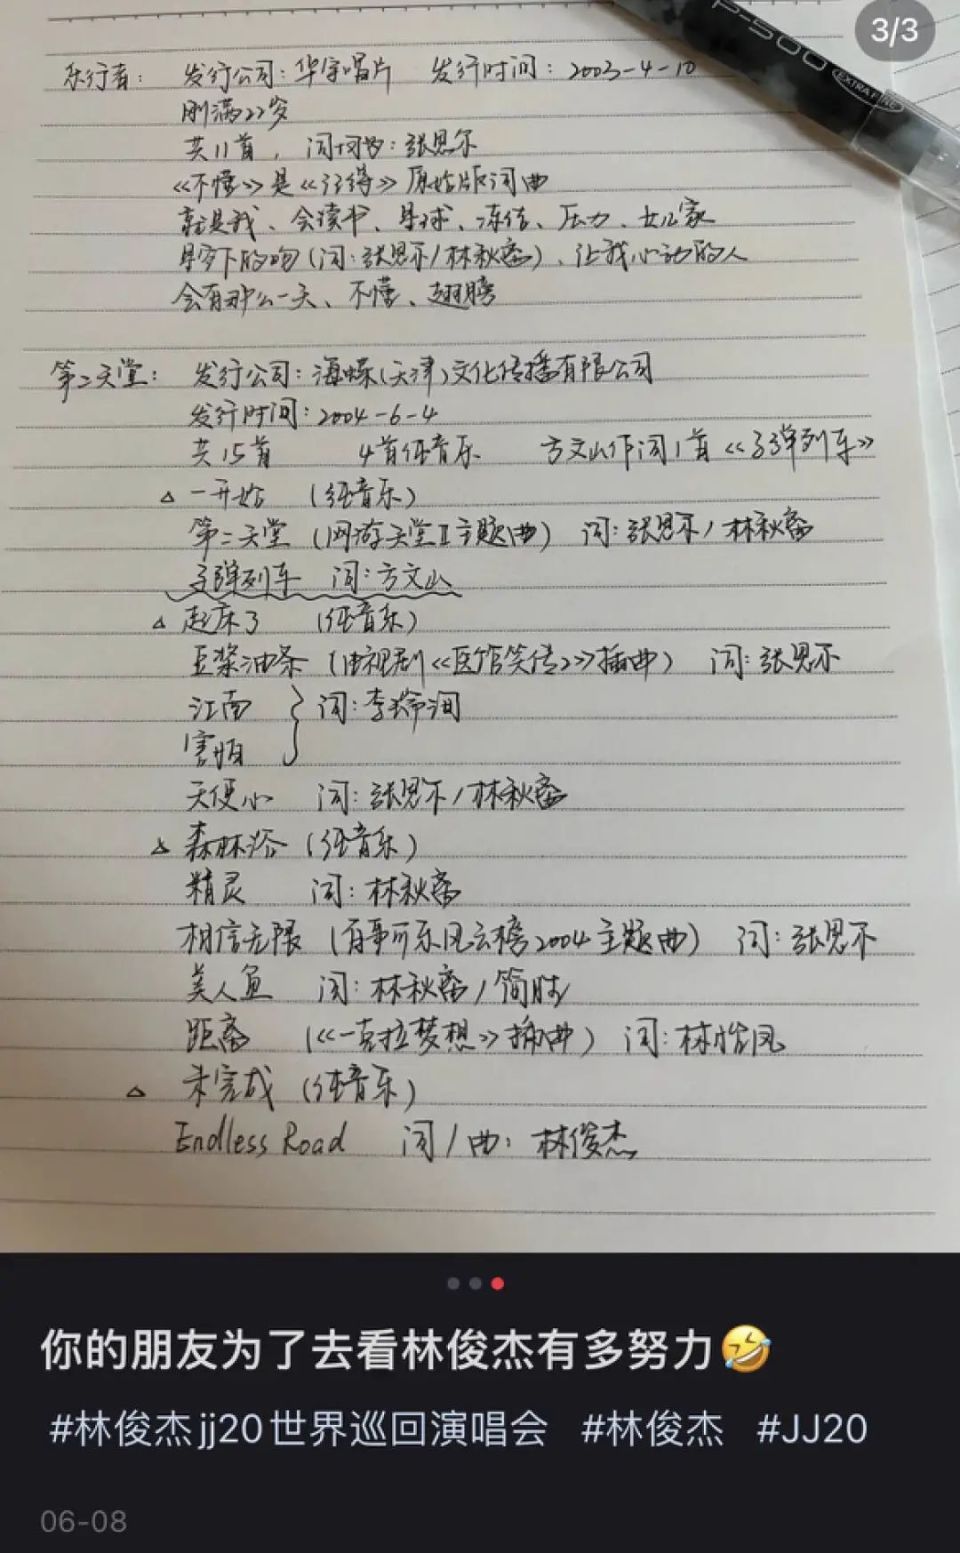 3/3
P-500 EXTRA FINE
乐行者： 发行公司：华宇唱片 发行时间：2003-4-10
刚满22岁
共11首，词均为：张思尔
《不懂》是《记得》原始版词曲
就是我、会读书、星球、冻结、压力、女儿家
星空下的吻（词：张思尔/林秋离）、让我心动的人
会有那么一天、不懂、翅膀
第二天堂： 发行公司：海蝶（天津）文化传播有限公司
发行时间：2004-6-4
共15首 4首纯音乐 方文山作词1首《子弹列车》
△ 一开始 （纯音乐）
第二天堂（网游天堂Ⅱ主题曲） 词：张思尔/林秋离
子弹列车 词：方文山
△ 起床了 （纯音乐）
豆浆油条（电视剧《医馆笑传2》插曲） 词：张思尔
江南 } 词：李瑞洵
害怕
天使心 词：张思尔/林秋离
△ 森林浴（纯音乐）
精灵 词：林秋离
相信无限（百事可乐风云榜2004主题曲） 词：张思尔
美人鱼 词：林秋离/简肢
距离 （《一克拉梦想》插曲） 词：林怡凤
△ 未完成（纯音乐）
Endless Road 词/曲：林俊杰
你的朋友为了去看林俊杰有多努力🤣
#林俊杰jj20世界巡回演唱会 #林俊杰 #JJ20
06-08